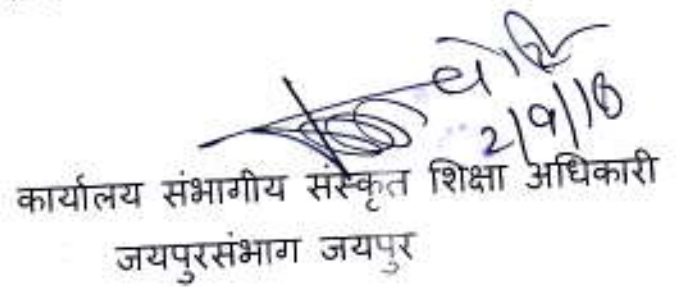 2/9/18
कार्यालय संभागीय संस्कृत शिक्षा अधिकारी
जयपुरसंभाग जयपुर